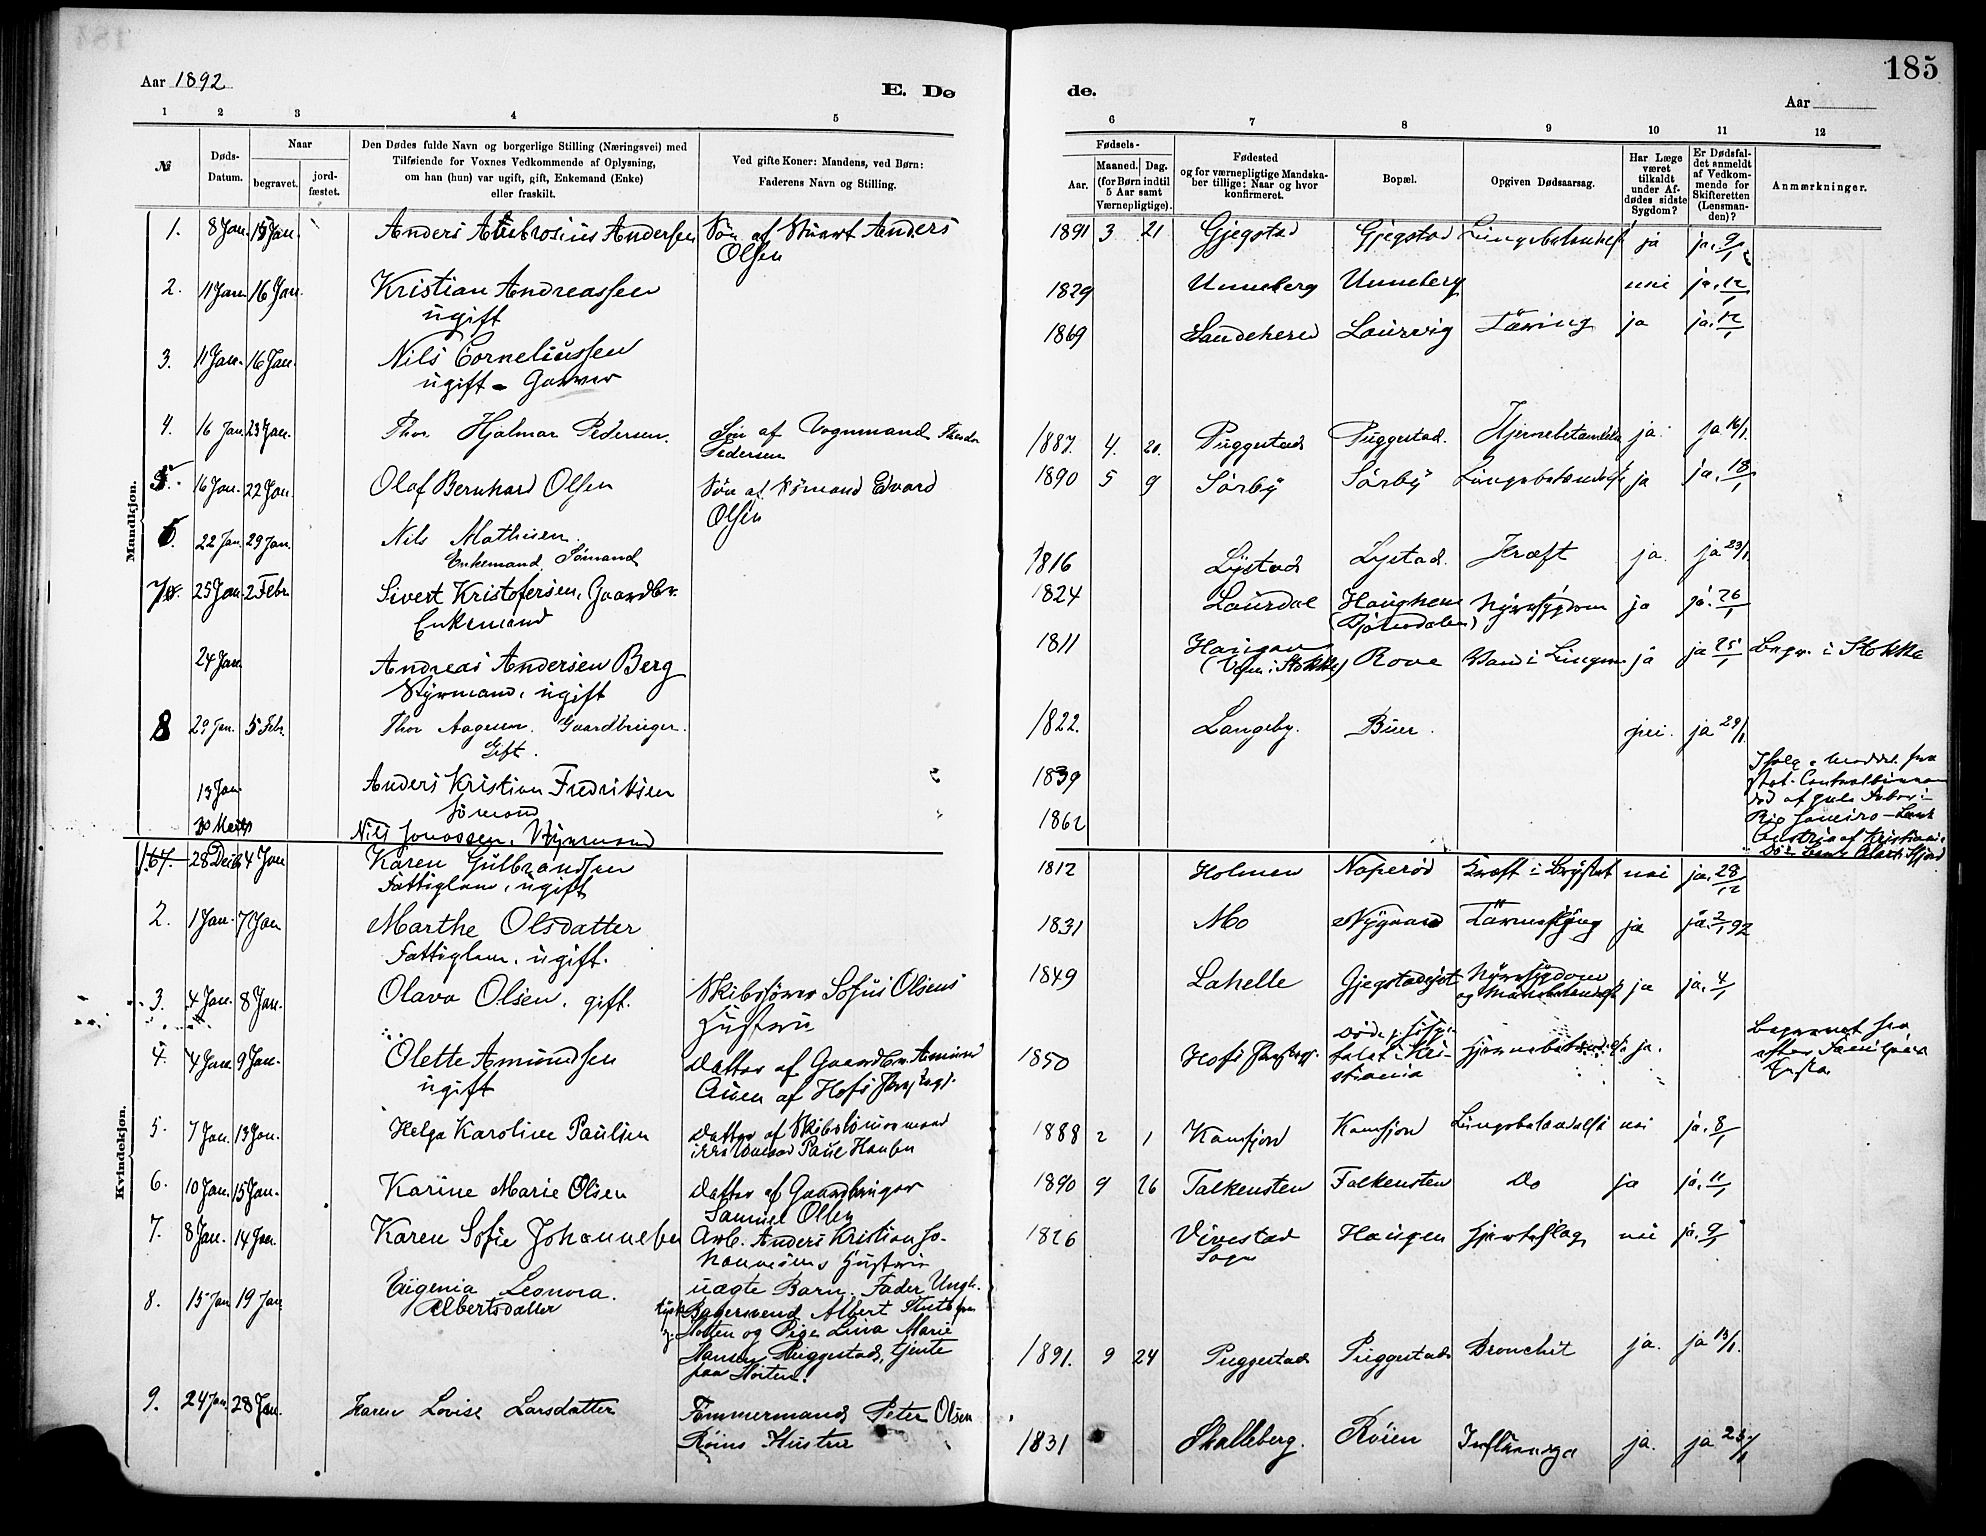 185
Aar 1892
E. Dø
de.
Aar
1 2 3 4 5 6 7 8 9 10 11 12
№
Døds-Datum.
Naar
begravet.
jordfæstet.
Den Dødes fulde Navn og borgerlige Stilling (Næringsvei) med
Tilføiende for Voxnes Vedkommende af Oplysning,
om han (hun) var ugift, gift, Enkemand (Enke)
eller fraskilt.
Ved gifte Koner: Mandens, ved Børn:
Faderens Navn og Stilling.
Fødsels-
Aar.
Maaned. Dag.
(for Børn indtil
5 Aar samt
Værnepligtige).
Fødested
og for værnepligtige Mandskaber tillige: Naar og hvor
konfirmeret.
Bopæl.
Opgiven Dødsaarsag.
Har Læge
været
tilkaldt
under Afdødes sidste
Sygdom?
Er Dødsfaldet anmeldt
af Vedkommende for
Skifteretten
(Lensmanden)?
Anmærkninger.
Mandkjøn.
1. 8 Jan. 15 Jan. Anders Ambrosius Andersen Søn af Stuert Anders 1891 3 21 Gjegstad Gjegstad Lungebetændelse ja ja. 9/1
Olsen
2. 11 Jan. 16 Jan. Kristian Andreassen 1829 Unneberg Unneberg nei ja. 12/1
ugift
3. 11 Jan. 16 Jan. Nils Corneliussen 1869 Sandeherred Laurvig Tæring ja ja. 12/1
ugift - Garver
4. 16 Jan. 23 Jan. Thor Hjalmar Pedersen. Søn af Vognmand Theodor 1887. 4. 20. Puggestad Puggestad. Hjernebetændelse ja. ja 16/1.
Pedersen
5. 16 Jan. 22 Jan. Olaf Bernhard Olsen Søn af Sømand Edvard 1890 5 9 Sørby Sørby Lungebetændelse ja ja. 18/1
Olsen
6. 22 Jan. 29 Jan. Nils Mathisen. 1816 Lystad Lystad. Kræft ja. ja 23/1
Enkemand, Sømand
7. 25 Jan 2 Febr. Sivert Kristofersen, Gaardbr. 1824 Laurdal Haughem Nyresygdom ja ja. 26/1
Enkemand
24 Jan. Andreas Andersen Berg 1811 Haugen Rove Vand i Lungen ja ja 25/1 Begr. i Stokke
Styrmand, ugift
8 29 Jan. 5 Febr. Thor Aagesen. Gaardbruger. 1822. Langeby. Buer. nei. ja 29/1.
Gift.
13 Jan. Anders Kristian Fredriksen 1839
Sømand
30 Marts Nils Jonassen, Styrmand 1862
Kvindekjøn.
167. 28 Decb. 4 Jan Karen Gulbrandsen 1812 Holmen Naperød Kræft i Brystet nei ja. 28/12
Fattiglem, ugift
2. 1 Jan. 7 Jan Marthe Olsdatter 1831 Mo Nygaard ja ja. 2/1 92
Fattiglem, ugift.
3. 4 Jan. 8 Jan. Olava Olsen, gift. Skibsfører Sofus Olsens 1849 Lahelle Nyresygdom ja ja. 4/1
Hustru
4. 4 Jan. 9 Jan. Olette Amundsen Datter af Gaardbr. Amund 1850 ja.
ugift
5. 7 Jan. 13 Jan. Helga Karoline Paulsen Datter af Skibstømmermand 1888 2 1 Kamfjord Kamfjord Lungebetændelse nei ja. 8/1
Paul Hansen
6. 10 Jan. 15 Jan. Karine Marie Olsen Datter af Gaardbruger 1890 9 26 Falkensten Falkensten Do ja ja. 11/1
Samuel Olsen
7. 8 Jan. 14 Jan. Karen Sofie Johannesen Arb. Anders Kristian Jo- 1826 Vivestad Haugen Hjerteslag nei ja. 9/1
hannesens Hustru Sogn
8. 15 Jan. 19 Jan. Eugenia Leonora. uægte Barn. Fader Ungk.
Albertsdatter Bagersvend Albert
og Pige Lina Marie
Hansen Puggestad, tjente 1891. 9 24 Puggestad Puggestad Bronchit ja. ja 15/1.
paa Horten.
9. 24 Jan. 28 Jan. Karen Lovise Larsdatter Tømmermand Peter Olsen 1831 Skalleberg. Røien Influenza ja. ja 25/1
Røins Hustru